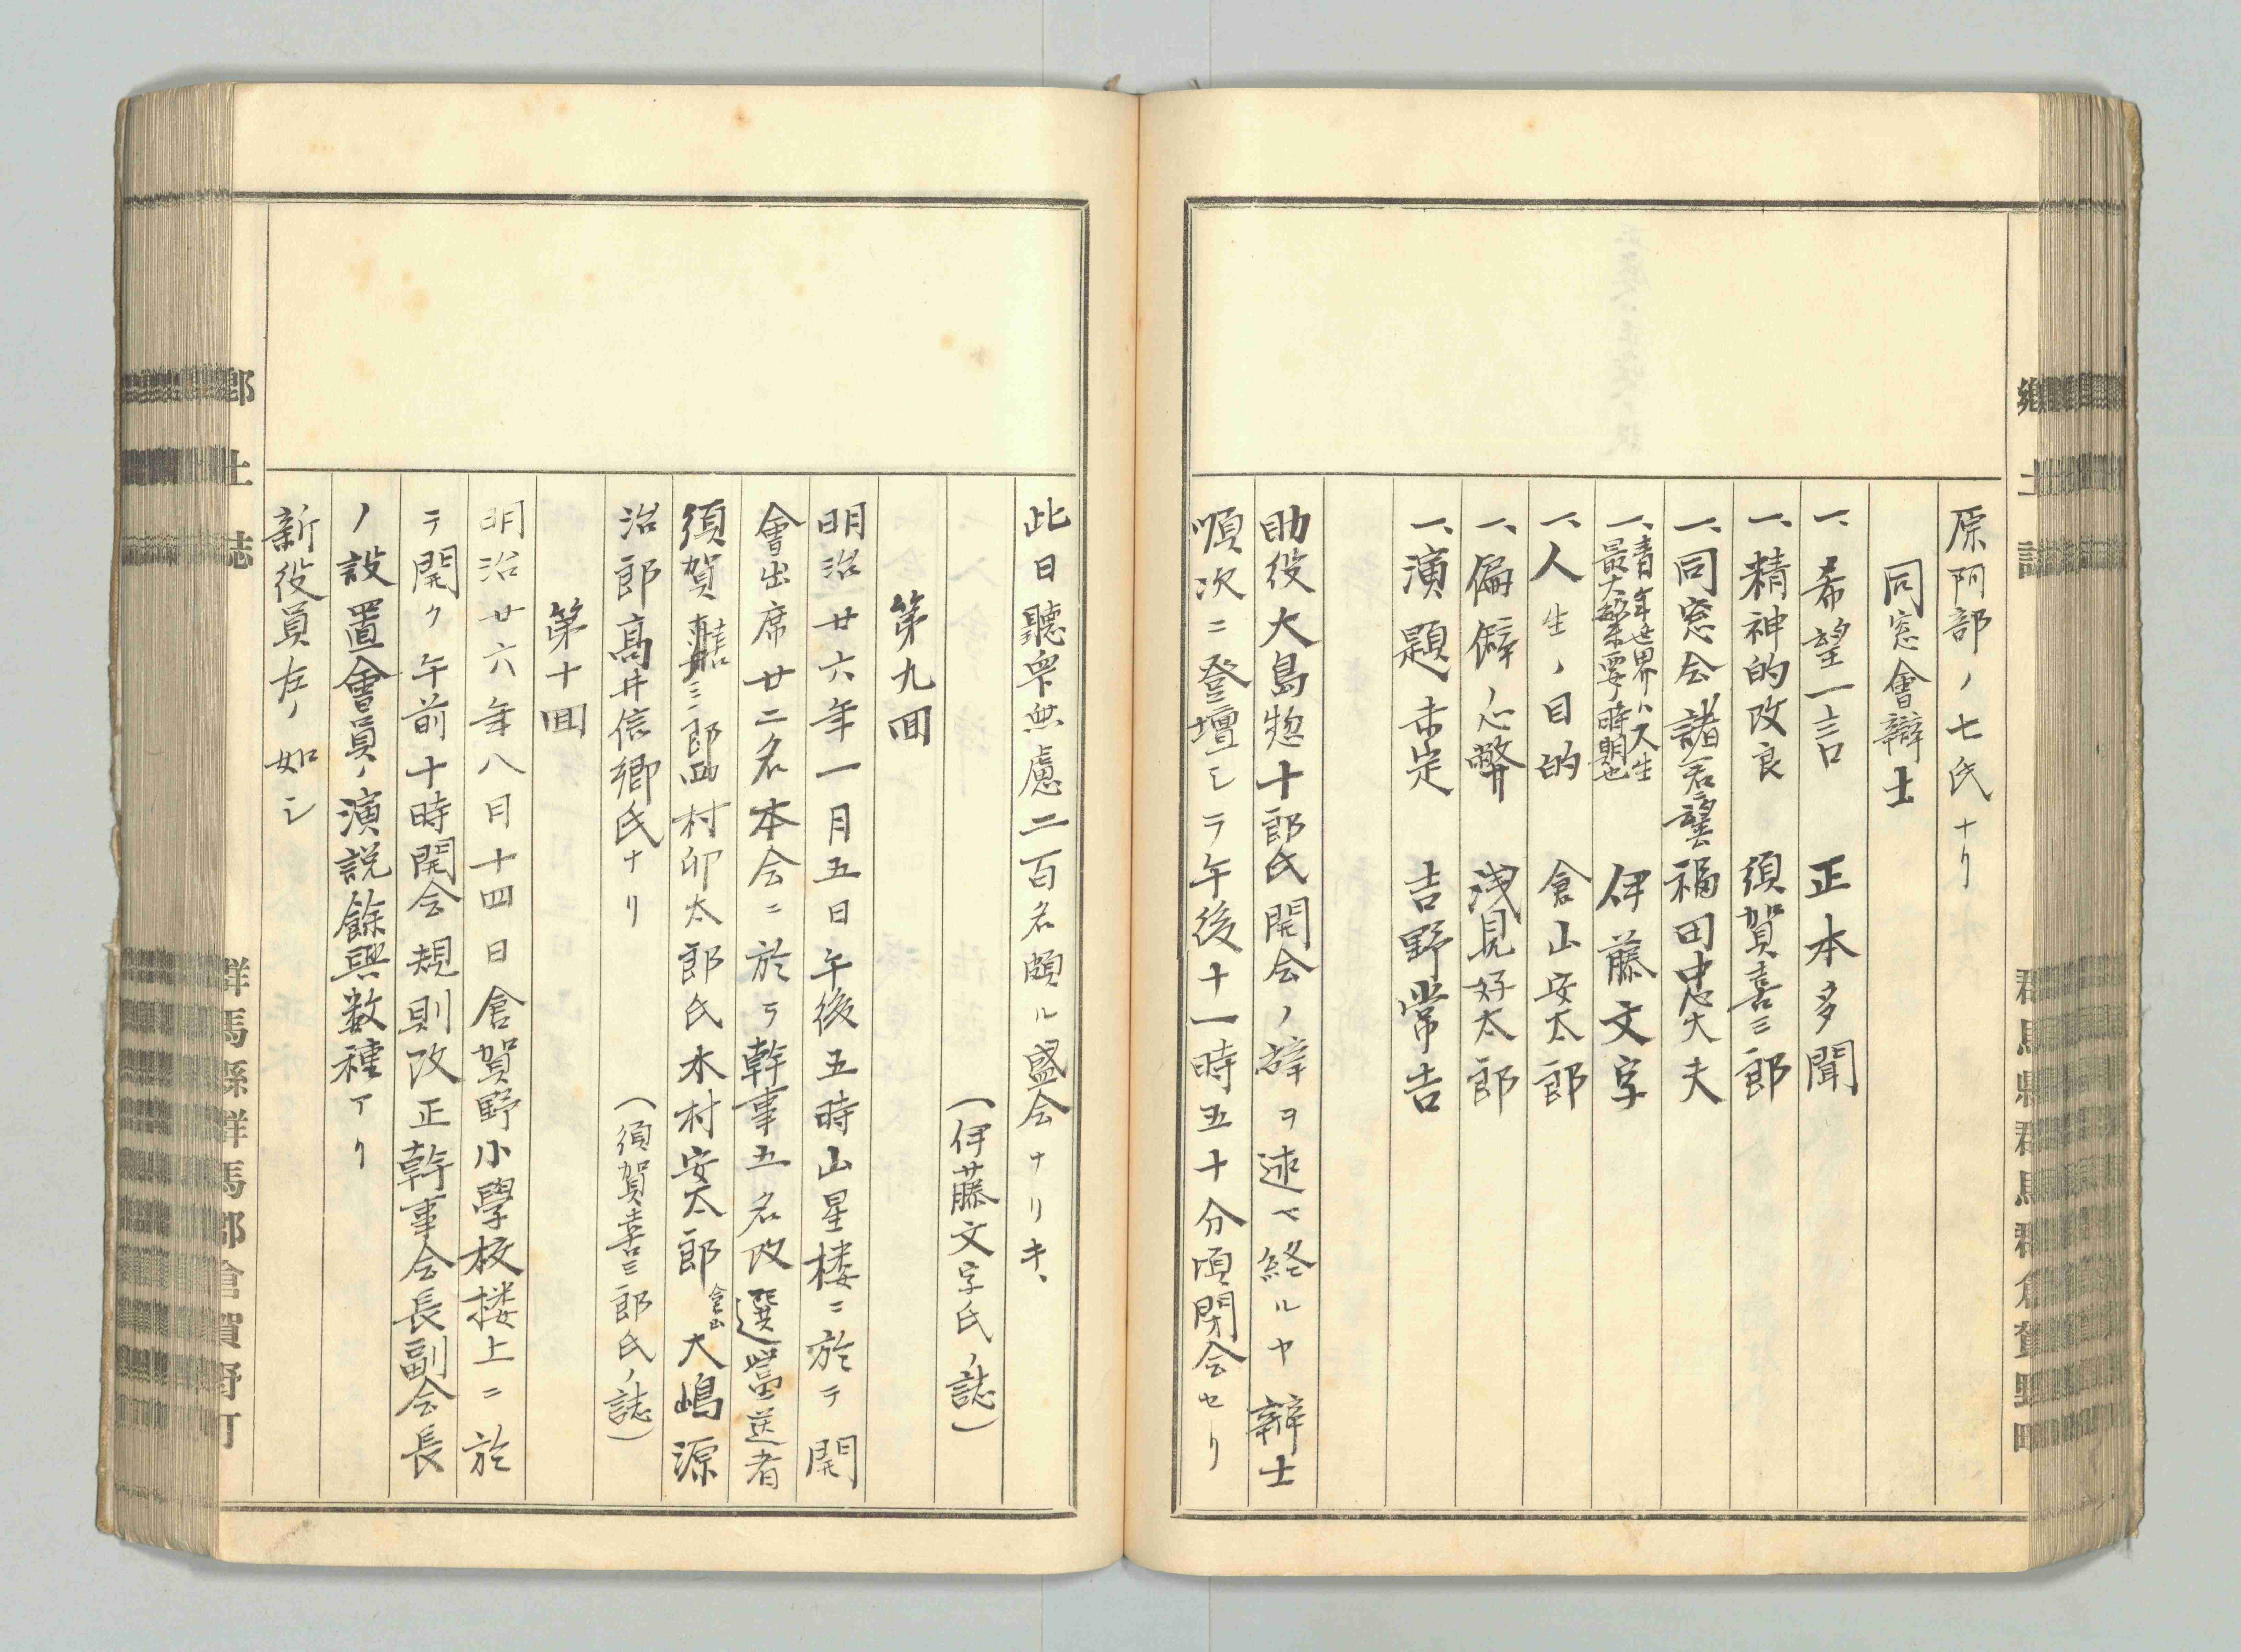 郷土誌
群馬縣群馬郡倉賀野町
原阿部ノ七氏ナリ
同窓會辯士
一、希望一言 正本多聞
一、精神的改良 須賀喜三郎
一、同窓会諸君ニ望ム 福田忠大夫
一、青年世界ハ人生最大緊要ノ時期也 伊藤文字
一、人生ノ目的 倉山安太郎
一、偏僻ノ心弊 浅見好太郎
一、演題未定 吉野常吉
助役大島惣十郎氏開会ノ辞ヲ述ベ終ルヤ辯士
順次ニ登壇シテ午後十一時五十分頃閉会セリ
此日聽衆無慮二百名頗ル盛会ナリキ、
(伊藤文字氏ノ誌)
第九回
明治廿六年一月五日午後五時山星楼ニ於テ開
會出席廿二名本会ニ於テ幹事五名改選當送者
須賀喜三郎西村卯太郎氏木村安太郎倉山大嶋源
治郎高井信郷氏ナリ (須賀喜三郎氏ノ誌)
第十回
明治廿六年八月十四日倉賀野小學校楼上ニ於
テ開ク午前十時開会規則改正幹事会長副会長
ノ設置會員ノ演説餘興数種アリ
新役員左ノ如シ
郷土誌
群馬縣群馬郡倉賀野町